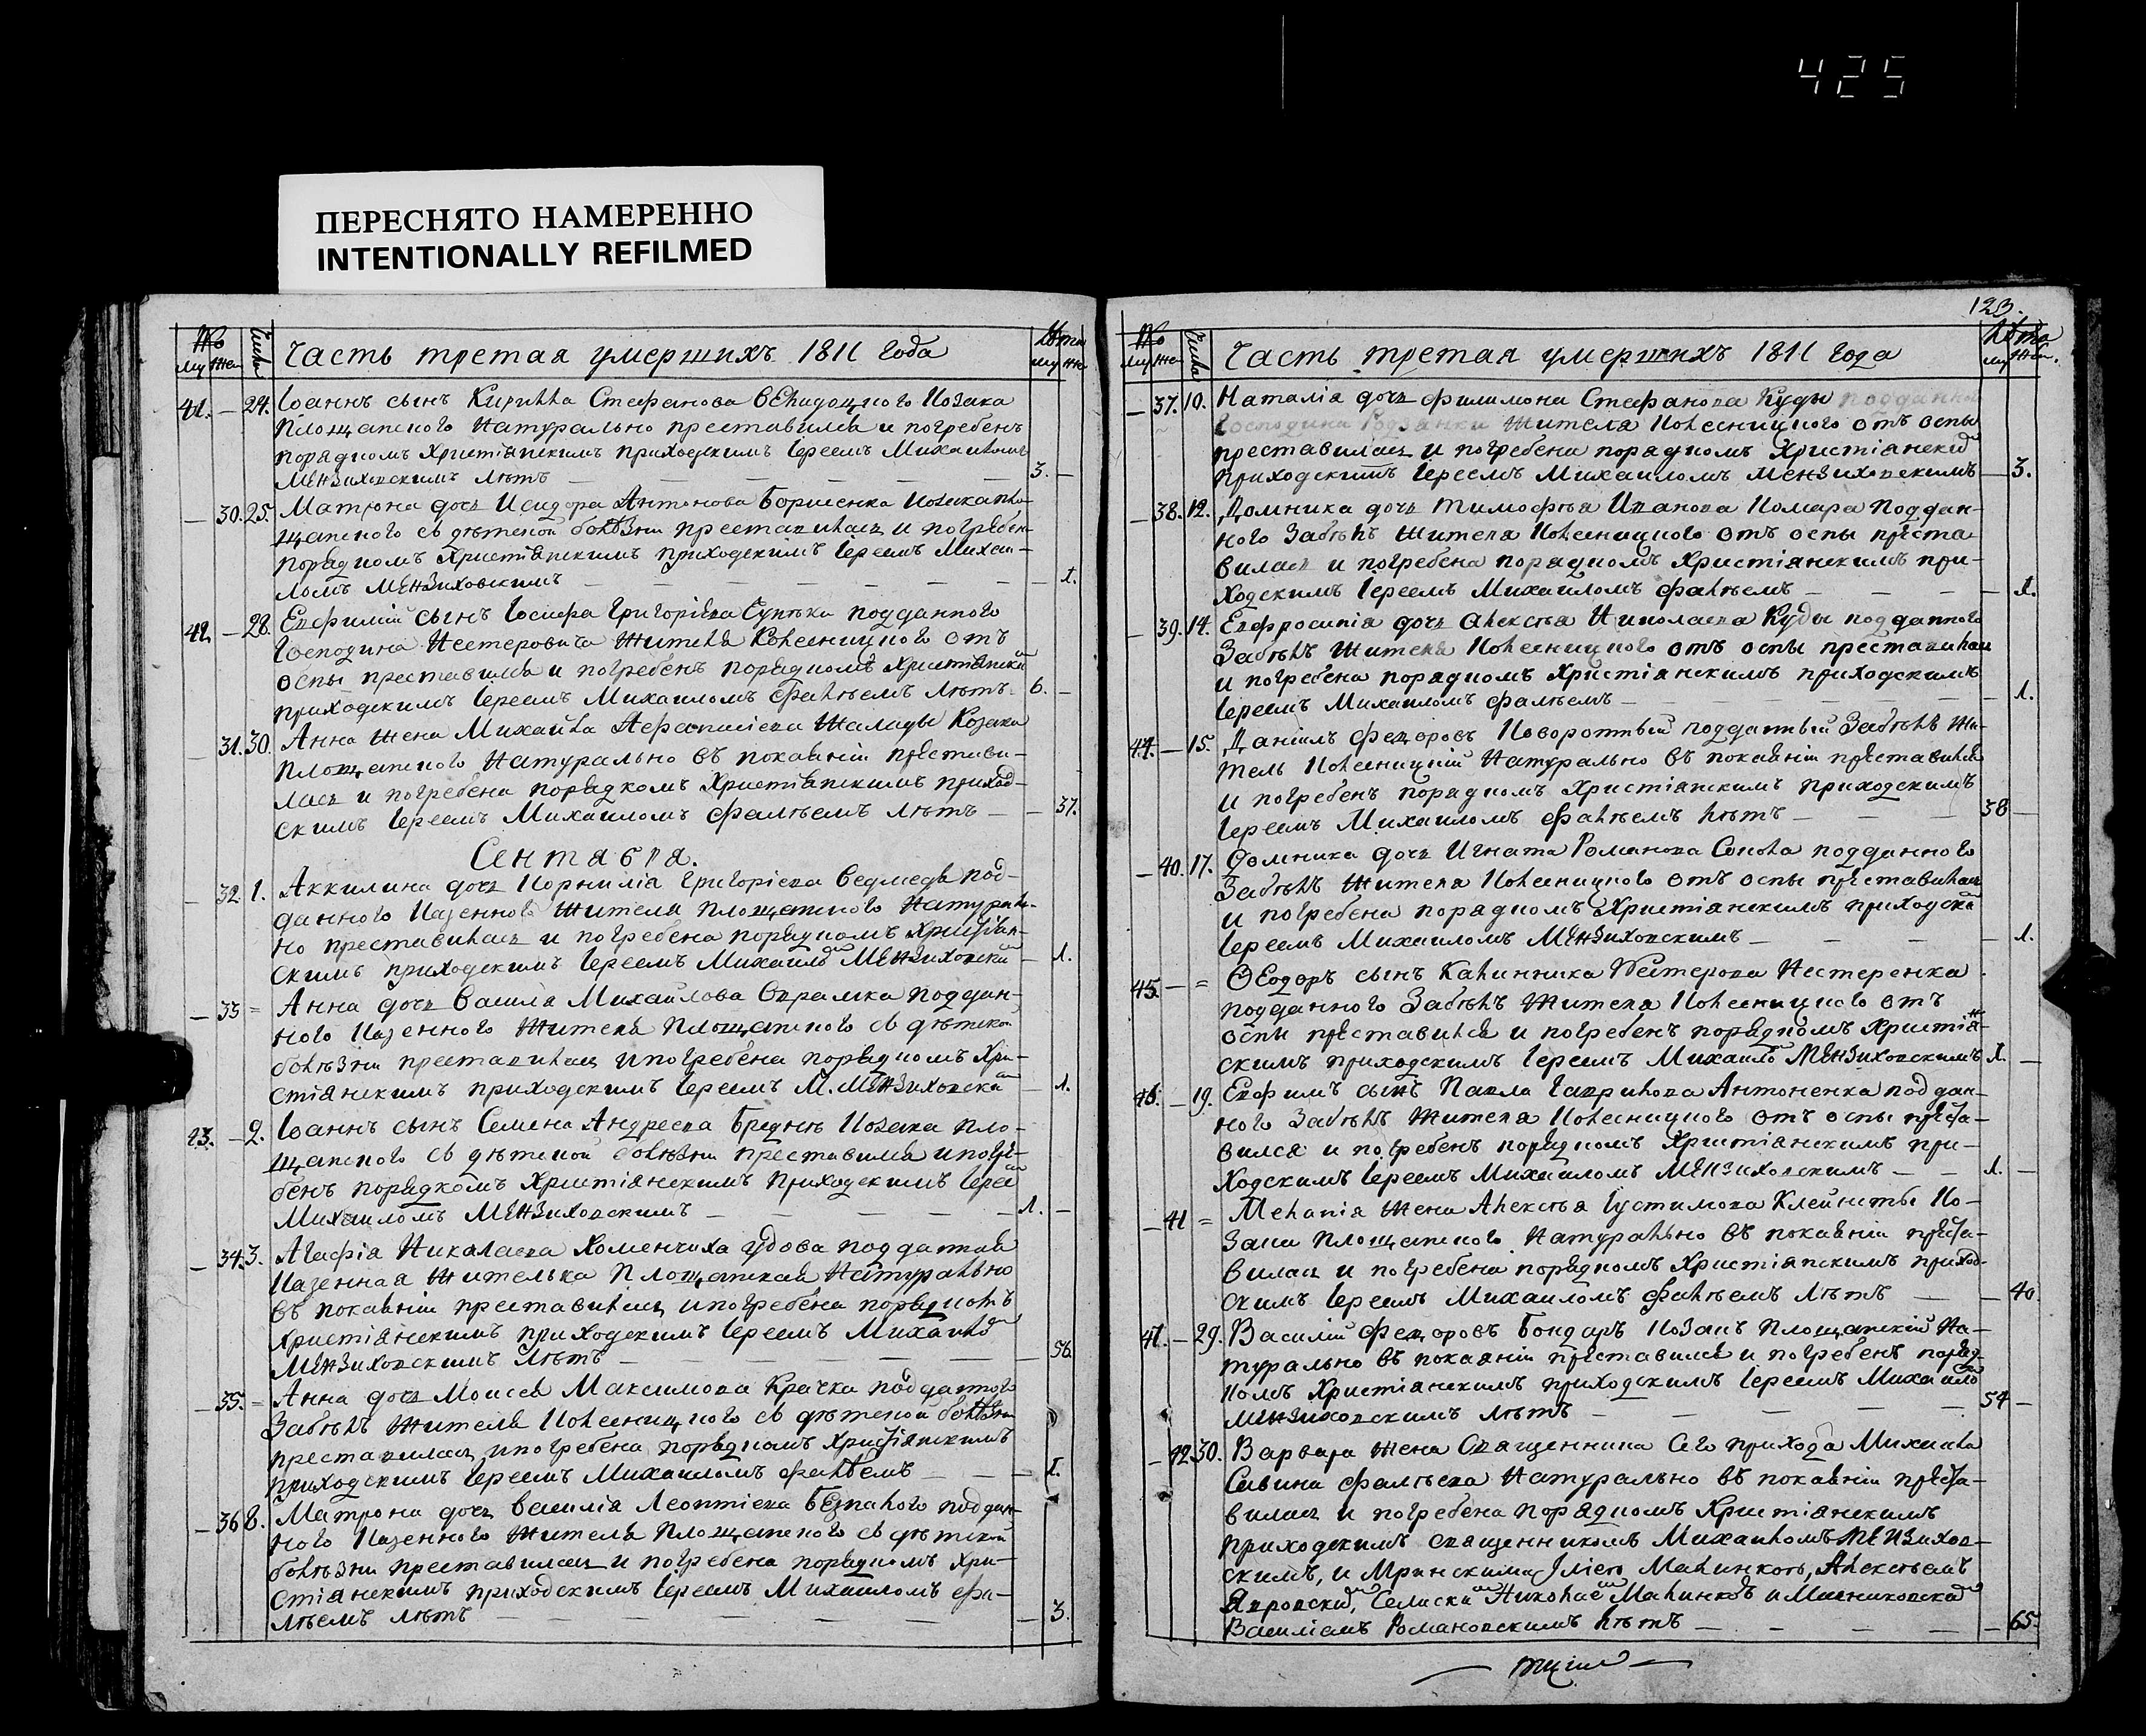 425
ПЕРЕСНЯТО НАМЕРЕННО
INTENTIONALLY REFILMED
№ Числа Часть третая умершихъ 1811 года Лѣта
му же му же
41. — 24. Іоаннъ сынъ Кирилла Стефанова козака
Площанского натурально преставился и погребенъ
порядкомъ христіянскимъ приходскимъ Іереемъ Михаиломъ
Мензиховскимъ лѣтъ — 3. —
— 30. 25. Матрона дочь Исидора Антонова Борисенка козака пло-
щанского съ дѣтской болѣзни преставилась и погребен
порядкомъ христіянскимъ приходскимъ Іереемъ Михаи-
ломъ Мензиховскимъ — 1.
42. — 28. Евфимій сынъ Іосифа Григоріева подданного
Господина Нестеровича жителя Колесницкого отъ
оспы преставился и погребенъ порядкомъ христіянски
приходскимъ Іереемъ Михаиломъ Фалѣемъ лѣтъ 6. —
— 31. 30. Анна жена Михайла Аѳанасіева Шалады козака
площанского натурально въ покаяніи престави-
лась и погребена порядкомъ христіянскимъ приход-
скимъ Іереемъ Михаиломъ Фалѣемъ лѣтъ — 37.
Сентября.
— 32 1. Аккилина дочь Корнилія Григоріева Ведмедя под-
данного казенного жителя площанского натураль-
но преставилась и погребена порядкомъ христіян-
скимъ приходскимъ Іереемъ Михаило Мензиховски — 1.
— 33 = Анна дочь Василія Михайлова поддан-
ного казенного жителя площанского съ дѣтской
болѣзни преставилась и погребена порядкомъ хри-
стіянскимъ приходскимъ Іереемъ М. Мензиховски — 1.
23. — 2. Іоаннъ сынъ Семена Андреева козака пло-
щанского съ дѣтской болѣзни преставился и погре-
бенъ порядкомъ христіянскимъ приходскимъ Іерее
Михаиломъ Мензиховскимъ — 1. —
— 34. 3. Агафія Николаева Хоменчиха удова подданная
казенная жителька Площанская натурально
въ покаяніи преставилась и погребена порядкомъ
христіянскимъ приходскимъ Іереемъ Михаило
Мензиховскимъ лѣтъ — 56.
— 35. = Анна дочь Моисея Максимова Крачка подданного
Забѣлъ жителя Колесницкого съ дѣтской болѣзни
преставилась и погребена порядкомъ христіянскимъ
приходскимъ Іереемъ Михаиломъ Фалѣемъ — 1.
— 36 8. Матрона дочь Василія Леонтіева Безпалого поддан-
ного казенного жителя площанского съ дѣтской
болѣзни преставилась и погребена порядкомъ хри-
стіянскимъ приходскимъ Іереемъ Михаиломъ Фа-
лѣемъ лѣтъ — 3.
123.
№ Числа Часть третая умершихъ 1811 года Лѣта
му же му же.
— 37. 10. Наталія дочь Филимона Стефанова Куды подданного
Господина Родзянки жителя Колесницкого отъ оспы
преставилась и погребена порядкомъ христіянски
приходскимъ Іереемъ Михаиломъ Мензиховскимъ — 3.
— 38. 12. Домника дочь Тимофѣя Иванова Комара поддан-
ного Забѣлъ жителя Колесницкого отъ оспы преста-
вилась и погребена порядкомъ христіянскимъ при-
ходскимъ Іереемъ Михаиломъ Фалѣемъ — 1.
— 39. 14. Евфросинія дочь Алексѣя Николаева Куды подданного
Забѣлъ жителя Колесницкого отъ оспы преставилась
и погребена порядкомъ христіянскимъ приходскимъ
Іереемъ Михаиломъ Фалѣемъ — 1.
44. — 15. Даніилъ Федоровъ Коворотный подданный Забѣлъ жи-
тель Колесницкій натурально въ покаяніи преставился
и погребенъ порядкомъ христіянскимъ приходскимъ
Іереемъ Михаиломъ Фалѣемъ лѣтъ — 38 —
— 40. 17. Домника дочь Игната Романова подданного
Забѣлъ жителя Колесницкого отъ оспы преставилась
и погребена порядкомъ христіянскимъ приходски
Іереемъ Михаиломъ Мензиховскимъ — 1.
45. — = Ѳеодоръ сынъ Калинника Нестерова Нестеренка
подданного Забѣлъ жителя Колесницкого отъ
оспы преставился и погребенъ порядкомъ христія-
скимъ приходскимъ Іереемъ Михаило Мензиховскимъ 1. —
46. — 19. Евфимъ сынъ Павла Гаврилова Антоненка поддан-
ного Забѣлъ жителя Колесницкого отъ оспы преста-
вился и погребенъ порядкомъ христіянскимъ при-
ходскимъ Іереемъ Михаиломъ Мензиховскимъ — 1. —
— 41 = Меланія жена Алексѣя Іустимова ко-
зака площанского натурально въ покаяніи преста-
вилась и погребена порядкомъ христіянскимъ приход-
скимъ Іереемъ Михаиломъ Фалѣемъ лѣтъ — 40.
47. — 29. Василій Федоровъ Бондарь козакъ площанскій на-
турально въ покаяніи преставился и погребенъ поряд-
комъ христіянскимъ приходскимъ Іереемъ Михаило
Мензиховскимъ лѣтъ — 54 —
— 42 30. Варвара жена священника сего прихода Михаила
Савина Фалѣева натурально въ покаяніи преста-
вилась и погребена порядкомъ христіянскимъ
приходскимъ священникомъ Михаиломъ Мензихов-
скимъ, и Мринскими Іліею Малинкою, Алексѣемъ
Яровски, Николае Малинко и
Василіемъ Романовскимъ лѣтъ — 65.